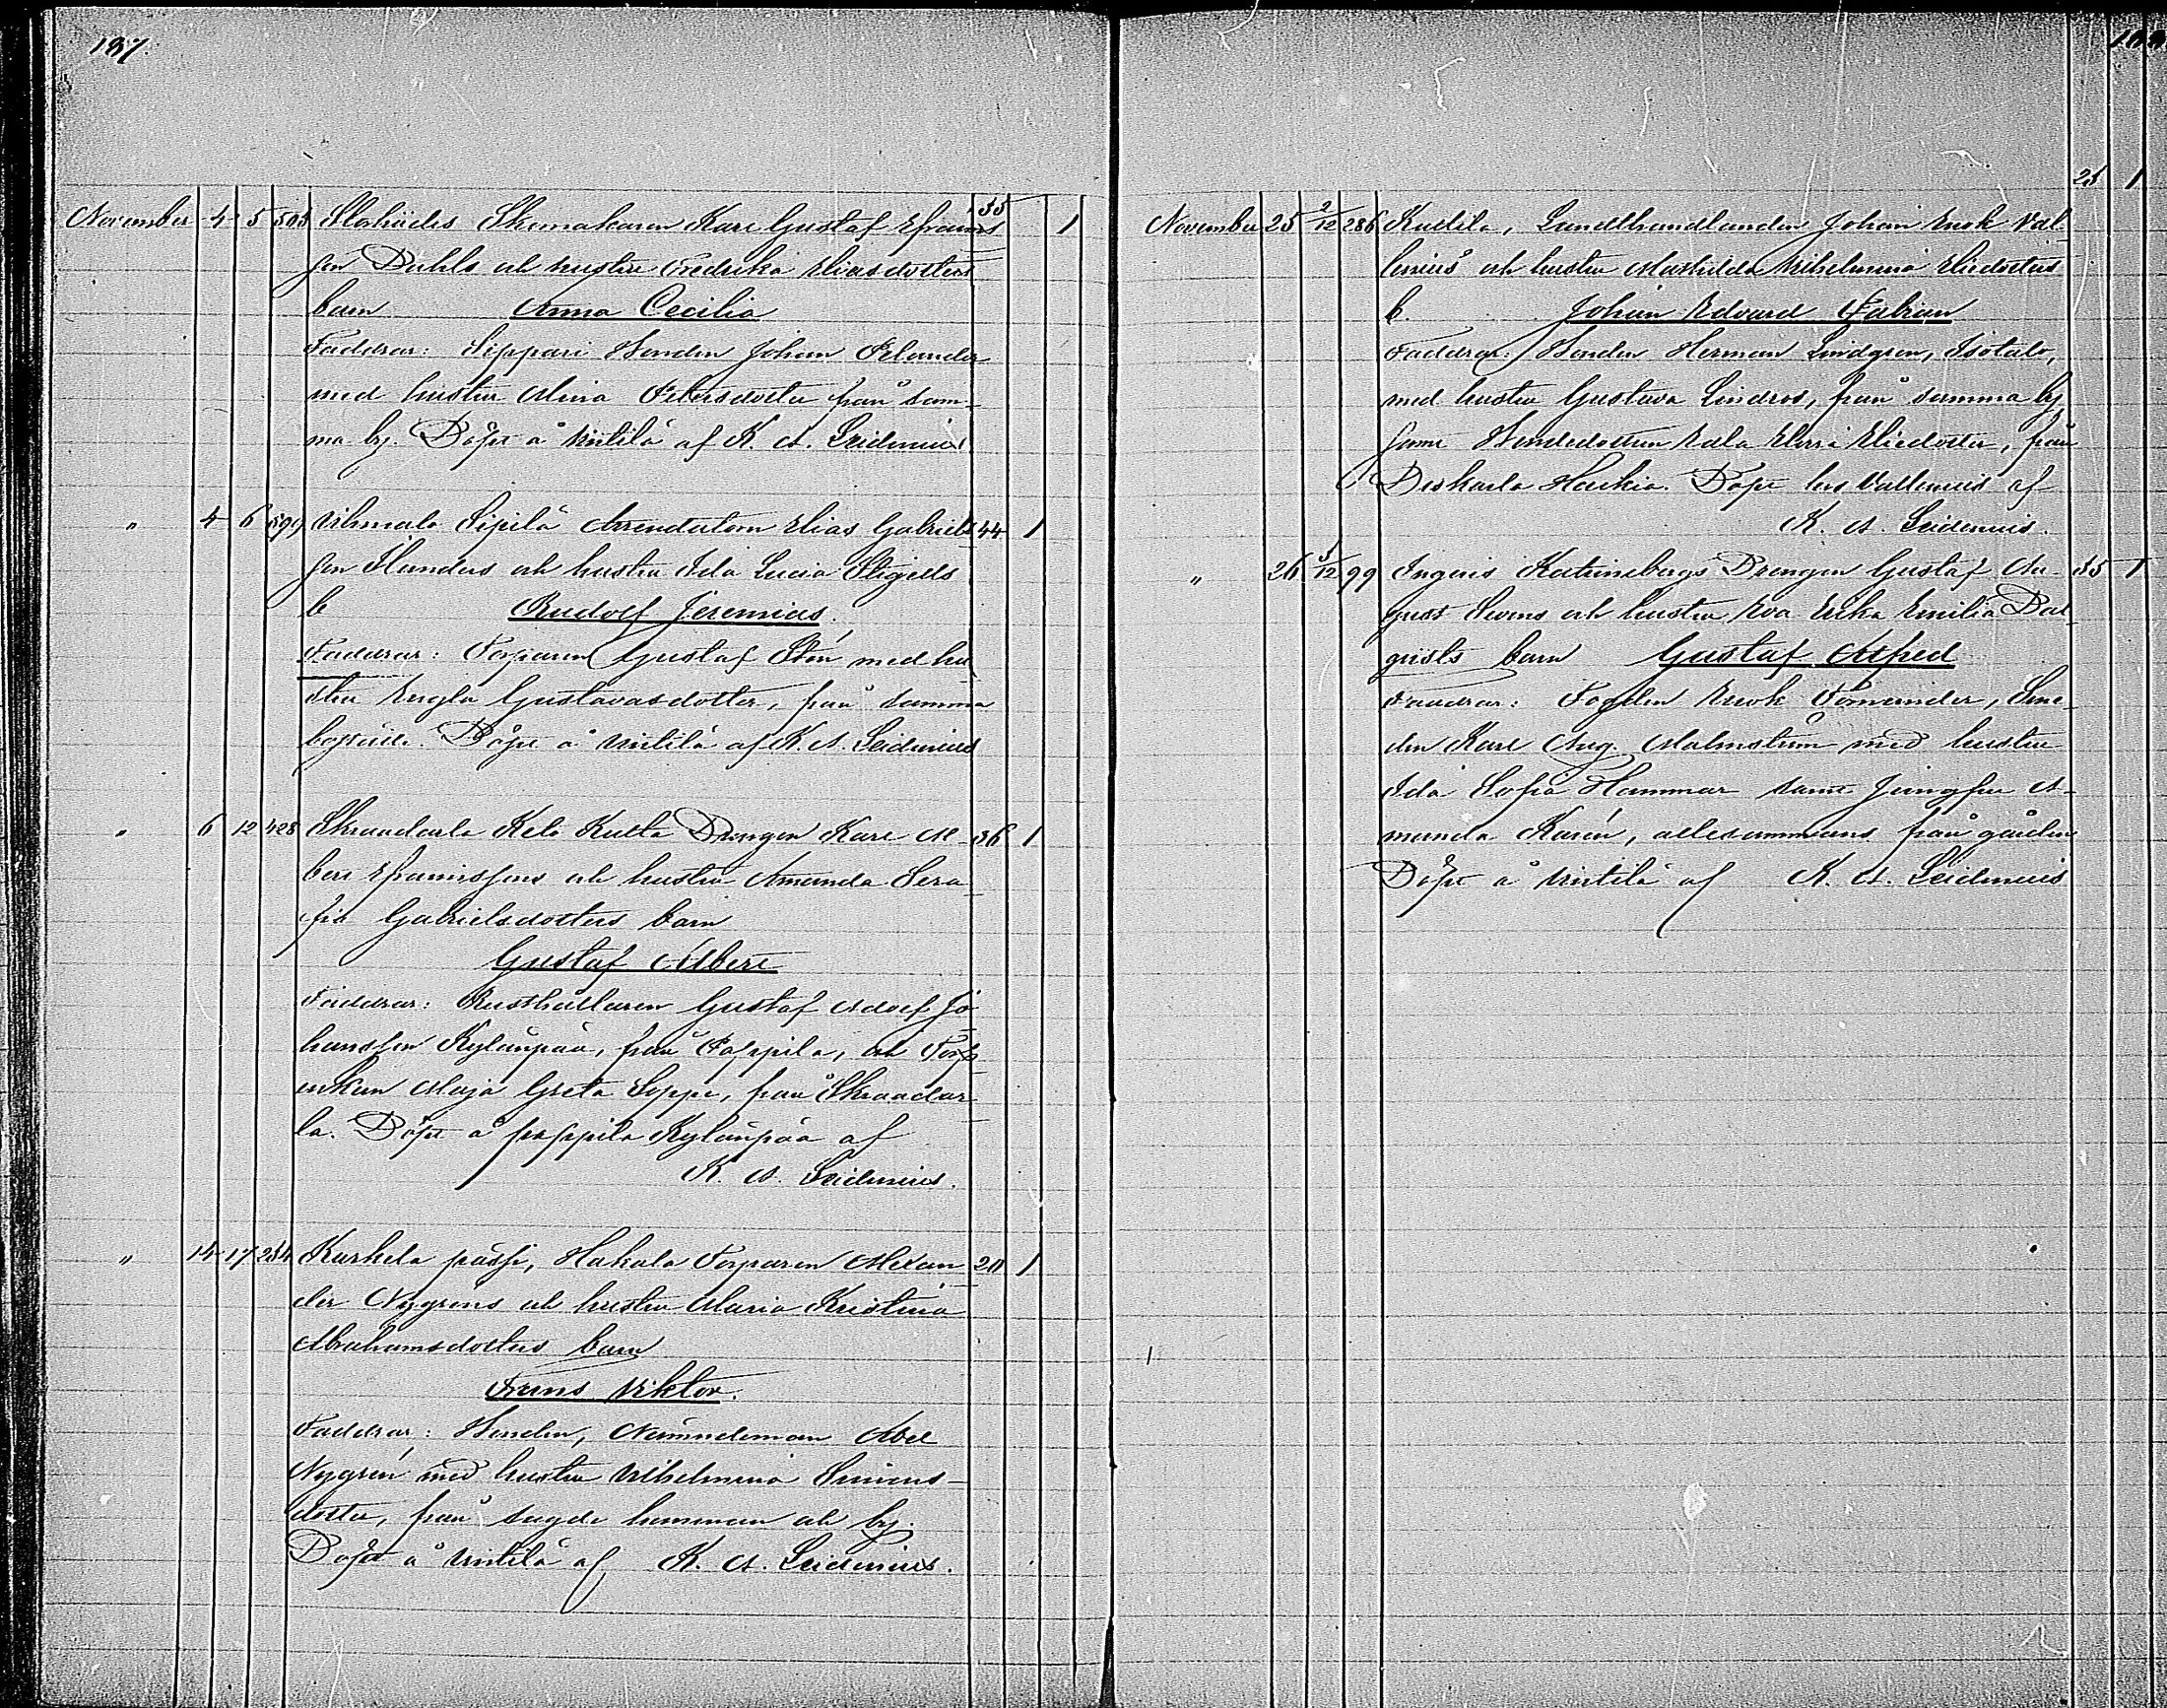 187.
November 4 5 505 Skomakaren Karl Gustaf Efraims 35 1
son Dahls och hustru Fredrika Eliasdotters
barn Anna Cecilia
Faddrar: Sippari Bonden Johan Felander
med hustru Mina Petersdotter från sam-
ma by. Döpt å Vintilä af K. A. Leidenius
" 4 6 599 Sipilä Arrendatorn Elias Gabriels 44 1
son och hustru Ida Lucia Stigells
b Rudolf Jeremias.
Faddrar: Torparen Gustaf Stén med hu
stru Gustavasdotter, från samma
Döpt å Vintilä af K. A. Leidenius
" 6 12 428 Skraadarla Kulta Drengen Karl Al- 36 1
bert Efraimssons och hustru Amanda Sera
fia Gabrielsdotters barn
Gustaf Albert
Faddrar: Rusthållaren Gustaf Adolf Jo
hansson Kylänpää, från Pappila, och Torp
enkan Maja Greta Seppe, från Skraadar
la. Döpt å pappila Kylänpää af
K. A. Leidenius.
" 14 17 234 Karhela Hakala Torparen Alexan 20 1
der Nygréns och hustru Maria Kristina
Abrahamsdotters barn
Frans Viktor.
Faddrar: Bonden, Nämndeman Abel
Nygrén med hustru Vilhelmina Simons-
dotter, från sagde hemman och by.
Döpt å Vintilä af K. A. Leidenius.
25 1
November 25 2/12 286 Landthandlanden Johan Enok Val-
lenius och hustru Mathilda Vilhelmina Eliedotters
b. Johan Edvard Fabian
Faddrar: Bonden Herman Lindgren, Isotalo,
med hustru Gustava Lindros, från samma by
samt Bondedottren Eliedotter, från
Haukia. Döpt hos Vallenius af
K. A. Leidenius.
" 26 3/12 99 Ingeris Katrinebergs Drengen Gustaf Au- 35 1
gust och hustru Eva Erika Emilia Dal
qvists barn Gustaf Alfred
Faddrar: Fogden Enok Tomander, Sme
den Karl Aug. Malmström med hustru
Ida Sofia Hammar samt Jungfru A-
manda Karén, allesammans från gården
Döpt å Vintilä af K. A. Leidenius